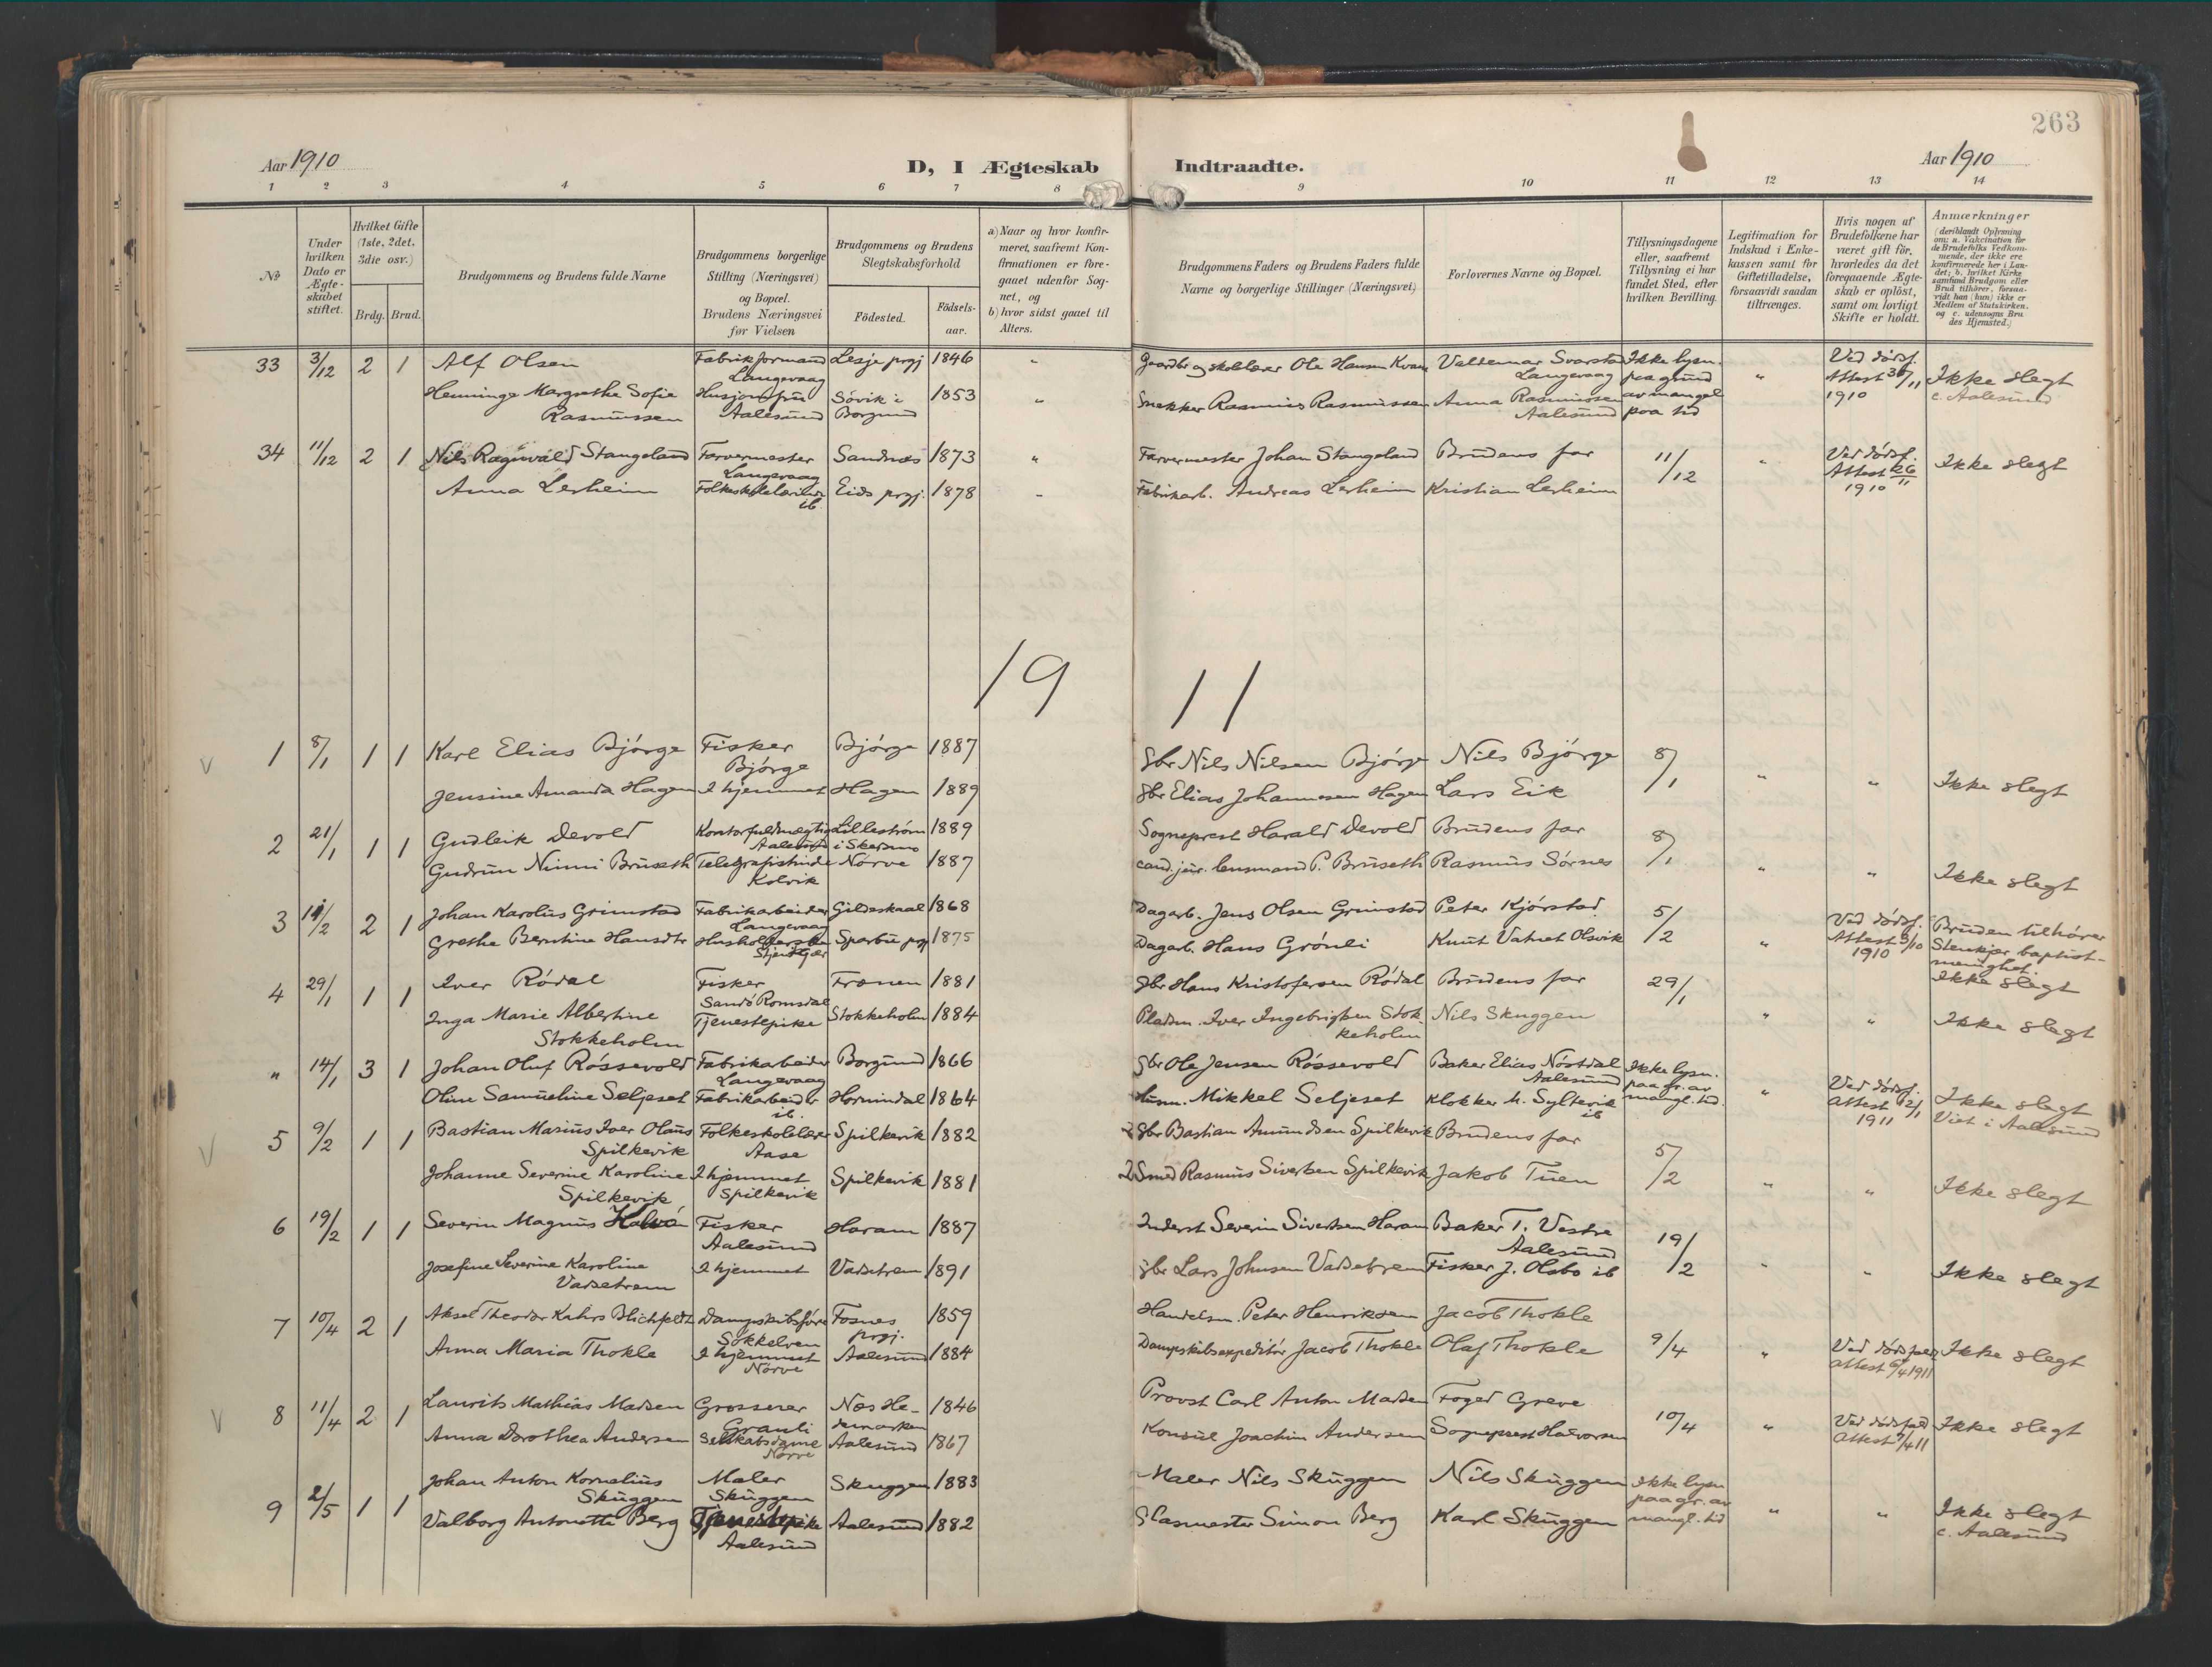 263
Aar 1910
D, I Ægteskab Indtraadte.
Aar 1910
1 2 3 4 5 6 7 8 9 10 11 12 13 14
No
Under hvilken Dato er Ægteskabet stiftet.
Hvilket Gifte (1ste, 2det, 3die osv.)
Brdg. Brud.
Brudgommens og Brudens fulde Navne
Brudgommens borgerlige Stilling (Næringsvei) og Bopæl. Brudens Næringsvei før Vielsen
Brudgommens og Brudens Slegtskabsforhold
Fødested.
Fødselsaar.
a) Naar og hvor konfirmeret, saafremt Konfirmationen er foregaaet udenfor Sognet, og
b) hvor sidst gaaet til Alters.
Brudgommens Faders og Brudens Faders fulde Navne og borgerlige Stillinger (Næringsvei)
Forlovernes Navne og Bopæl.
Tillysningsdagene eller, saafremt Tillysning ei har fundet Sted, efter hvilken Bevilling.
Legitimation for Indskud i Enkekassen samt for Giftetilladelse, forsaavidt saadan tiltrænges.
Hvis nogen af Brudefolkene har været gift før, hvorledes da det foregaaende Ægteskab er opløst, samt om lovligt Skifte er holdt.
Anmærkninger (deriblandt Oplysning om: a. Vakcination for de Brudefolks Vedkommende, der ikke ere konfirmerede her i Landet; b. hvilket Kirkesamfund Brudgom eller Brud tilhører, forsaavidt han (hun) ikke er Medlem af Statskirken. og c. udensogns Brudes Hjemsted.)
33 3/12 2 1 Alf Olsen Fabrikformand Langevaag Lesje prgj 1846 " Gaardbr og skolelærer Ole Hansen Kvam Valdemar Svarstad Langevaag Ikke lysn. paa grund av mangel paa tid " Ved dødsf. Attest 30/11 1910 Ikke slegt c. Aalesund
Henninge Margrethe Sofie Rasmussen Husjomfru Aalesund Søvik i Borgund 1853 " Snekker Rasmus Rasmussen Anna Rasmussen Aalesund
34 11/12 2 1 Nils Ragnvald Stangeland Farvermester Langevaag Sandnes 1873 " Farvermester Johan Stangeland Brudens far 11/12 " Ved dødsf. Attest 26/11 1910 Ikke slegt
Anna Lerheim Folkeskolelærerinde ib. Eids prgj. 1878 " Fabrikarb. Andreas Lerheim Kristian Lerheim
1911
1 8/1 1 1 Karl Elias Bjørge Fisker Bjørge Bjørge 1887 Gbr Nils Nilsen Bjørge Nils Bjørge 8/1 " " Ikke slegt
Jensine Amanda Hagen I hjemmet Hagen 1889 Gbr Elias Johannesen Hagen Lars Eik
2 21/1 1 1 Gudleik Devold Kontorfuldmægtig Aalesund Lillestrøm i Skedsmo 1889 Sogneprest Harald Devold Brudens far 8/1 " " Ikke slegt
Gudrun Ninni Bruseth Telegrafistinde Kolvik Nørve 1887 cand. jur. lensmand P. Bruseth Rasmus Sørnes
3 11/2 2 1 Johan Karolius Grimstad Fabrikarbeider Langevaag Gildeskaal 1868 Dagarb. Jens Olsen Grimstad Peter Kjørstad 5/2 " Ved dødsf. Attest 3/10 1910 Bruden tilhører Stenkjer baptistmenighet. Ikke slegt
Grethe Berntine Hansdtr Husholderske Sparbu prgj 1875 Dagarb. Hans Grønli Knut Vatnet Olsvik
4 29/1 1 1 Iver Rødal Fisker Sandø Romsdal Frænen 1881 Gbr Hans Kristofersen Rødal Brudens far 29/1 " " Ikke slegt
Inga Marie Albertine Stokkeholm Tjenestepike Stokkeholm 1884 Pladsm. Iver Ingebrigtsen Stokkeholm Nils Skuggen
" 14/1 3 1 Johan Oluf Røssevold Fabrikarbeider Langevaag Borgund 1866 Gbr Ole Jensen Røssevold Baker Elias Nøstdal Aalesund Ikke lysn. paa gr. av mangl. tid. " Ved dødsf. Attest 2/1 1911 Ikke slegt Viet i Aalesund
Oline Samueline Seljeset Fabrikarbeider ib. Hornindal 1864 Husm. Mikkel Seljeset Klokker M. Syltevik ib
5 9/2 1 1 Bastian Marius Iver Olaus Spilkevik Folkeskolelærer Aase Spilkevik 1882 Gbr Bastian Amundsen Spilkevik Brudens far 5/2 " " Ikke slegt
Johanne Severine Karoline Spilkevik I hjemmet Spilkevik Spilkevik 1881 Smed Rasmus Sivertsen Spilkevik Jakob Tuen
6 19/2 1 1 Severin Magnus Fisker Aalesund Haram 1887 Inderst Severin Sivertsen Haram Baker T. Vestre Aalesund 19/2 " " Ikke slegt
Josefine Severine Karoline Vadsetrem I hjemmet Vadsetrem 1891 gbr Lars Johnsen Vadsetrem Fisker J. Olsbo ib
7 10/4 2 1 Aksel Theodor Kahrs Blichfeldt Dampskibsfører Søkkelven Fosnes prgj. 1859 Handelsm. Peter Henriksen Jacob Thokle 9/4 " Ved dødsfald Attest 6/4 1911 Ikke slegt
Anna Maria Thokle I hjemmet Nørve Aalesund 1884 Dampskibsexpeditør Jacob Thokle Olaf Thokle
8 11/4 2 1 Laurits Mathias Madsen Grosserer Granli Næs Hedemarken 1846 Provst Carl Anton Madsen Foged Greve 10/4 " Ved dødsfald Attest 7/4 11 Ikke slegt
Anna Dorothea Andersen Selskabsdame Nørve Aalesund 1867 Konsul Joachim Andersen Sogneprest Halvorsen
9 2/5 1 1 Johan Anton Kornelius Skuggen Maler Skuggen Skuggen 1883 Maler Nils Skuggen Nils Skuggen Ikke lysn paa gr. av mangl. tid " " Ikke slegt c. Aalesund
Valborg Antonette Berg Tjenestepike Aalesund Aalesund 1882 Glasmester Simon Berg Karl Skuggen